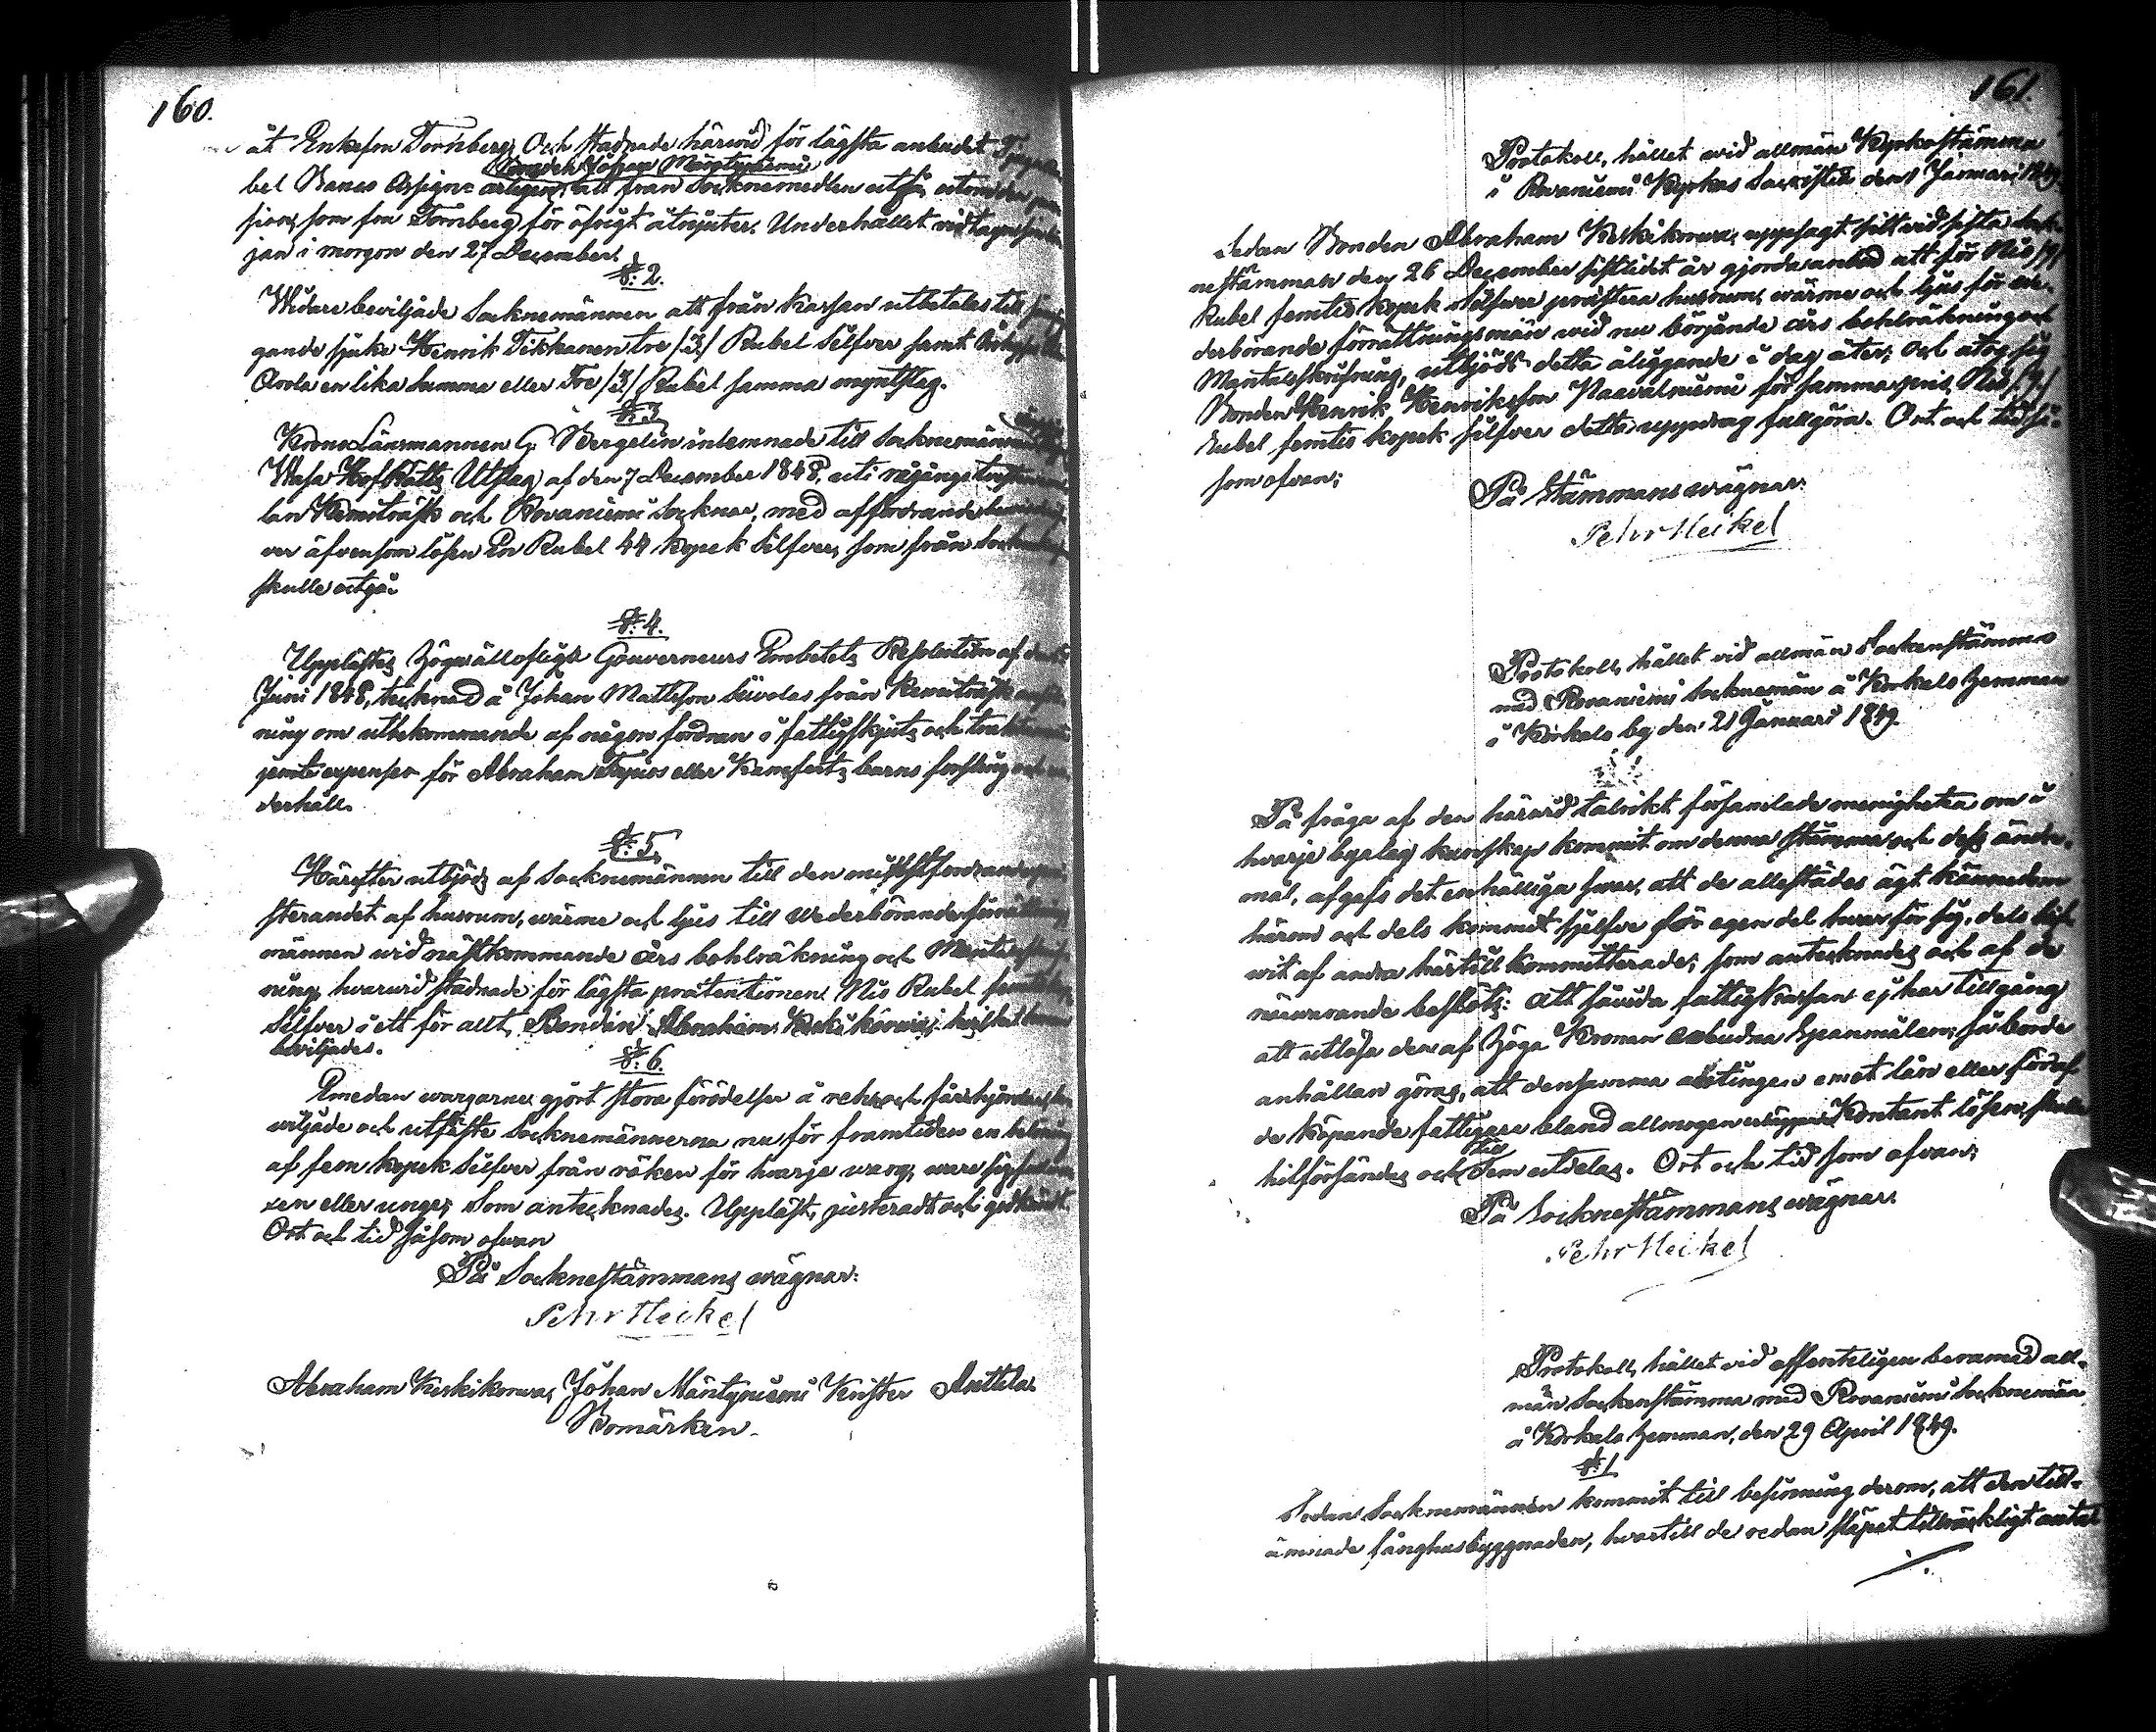 160.
åt Enkefru Tornberg. Och stadnade härwid för lägsta anbudet
Bonden Johan Mäntyniemi
bel Banco Assigne årligen, att från Socknemedlen utfå, utom den
sion, som fru Tornberg för öfrigt åtnjuter. Underhållet widtager
jan i morgon den 27 December.
§: 2.
Widare beviljade Socknemännen att från Kassan utbetales till
gande sjuke Henrik Tikkanen tre /3/ Rubel Silfver samt
Anda en lika summa eller Tre /3/ Rubel samma myntslag.
§: 3.
Krono Länsmannen G. Bergelin inlemnade till Socknemännen
Wasa HofRätts Utslag af den 7 December 1848, uti rågångs
lan Kemiträsk och Rovaniemi Socknar, med affordrande
ver äfvensom lösen En Rubel 44 Kopek Silfver, som från
skulle utgå.
§: 4.
Upplästes Högwällofliga Gouverneurs Embetets Resolution af den
Juni 1848, tecknad å Johan Mattsson Siivolas från Kemiträsk
ning om utbekommande af någon fordran i fattigskjuts och
jemte expenser för Abraham Tapios eller Kemferts barns forsling och
derhåll.
§: 5.
Härefter utbjöds af Socknemännen till den minstfordrande
sterandet af husrum, wärme och ljus till wederbörande
männen wid nästkommande års bohlräkning och
ning, hwarwid stadnade för lägsta prætentionen Nio Rubel
Silfver i ett för allt, Bonden Abraham Keskikorwa; hwilket
beviljades.
§: 6.
Emedan wargarne gjort stora förödelser å rehn och fårhjordar,
wiljade och utfäste Socknemännerna nu för framtiden en
af fem kopek Silfver från röken för hwarje warg, ware sig
xen eller unge; Som antecknades. Uppläst, justeradt och godkändt.
Ort och tid såsom ofwan
På Socknestämmans wägnar:
Pehr Heikel
Abraham Keskikorwa, Johan Mäntyniemi Krister Anttila
Bomärken.
161.
Protokoll, hållet wid allmän Kyrkostämma
i Rovaniemi Kyrkas Sacristia den 1 Januari 1849.
Sedan Bonden Abraham Keskikorwa, uppsagt sitt wid sista Sock-
nestämman den 26 December sistlidet år gjorda anbud att för Nio /9/
Rubel femtio kopek Silfwer prestera husrum, wärme och ljus för we-
derbörande förrättningsmän wid nu börjande års bohlräkning och
Mantalsskrifning, utbjöds detta åliggande i dag åter; och åtog sig
Bonden Henrik Henriksson Vaaralniemi för samma pris, Nio /9/
Rubel femtio kopek silfver detta uppdrag fullgöra. Ort och tid så-
som ofvan;
På Stämmans wägnar:
Pehr Heikel
Protokoll, hållet wid allmän Sockenstämma
med Rovaniemi Socknemän å Korkalo Hemman
i Korkalo by den 21 Januari 1849.
På fråga af den härwid talrikt församlade menigheten om i
hvarje byalag kunskap kommit om denna stämma och dess ända-
mål, afgafs det enhälliga swar, att de allestädes ägt kännedom
härom och dels kommit sjelfve för egen del hwar för sig, dels blif-
wit af andra härtill kommitterade; som antecknades och af de
närwarande beslöts: att såwida fattig Kassan ej har tillgång
att utlösa den af Höga Kronan anbudna Spannmålen, så borde
anhållan göras, att densamma antingen emot lån eller för af
de köpande fattigare bland allmogen erläggande Kontant lösen, skulle
till
hitförsändas och dem utdelas. Ort och tid som ofvan;
På Socknestämmans wägnar:
Pehr Heikel
Protokoll, hållet wid offenteligen beramad all-
män Sockenstämma med Rovaniemi Socknemän
å Korkalo Hemman, den 29 April 1849.
§: 1
Sedan Socknemännen kommit till besinning derom, att den till-
ämnade fånghusbyggnaden, hwartill de redan släpat tillräckligt antal